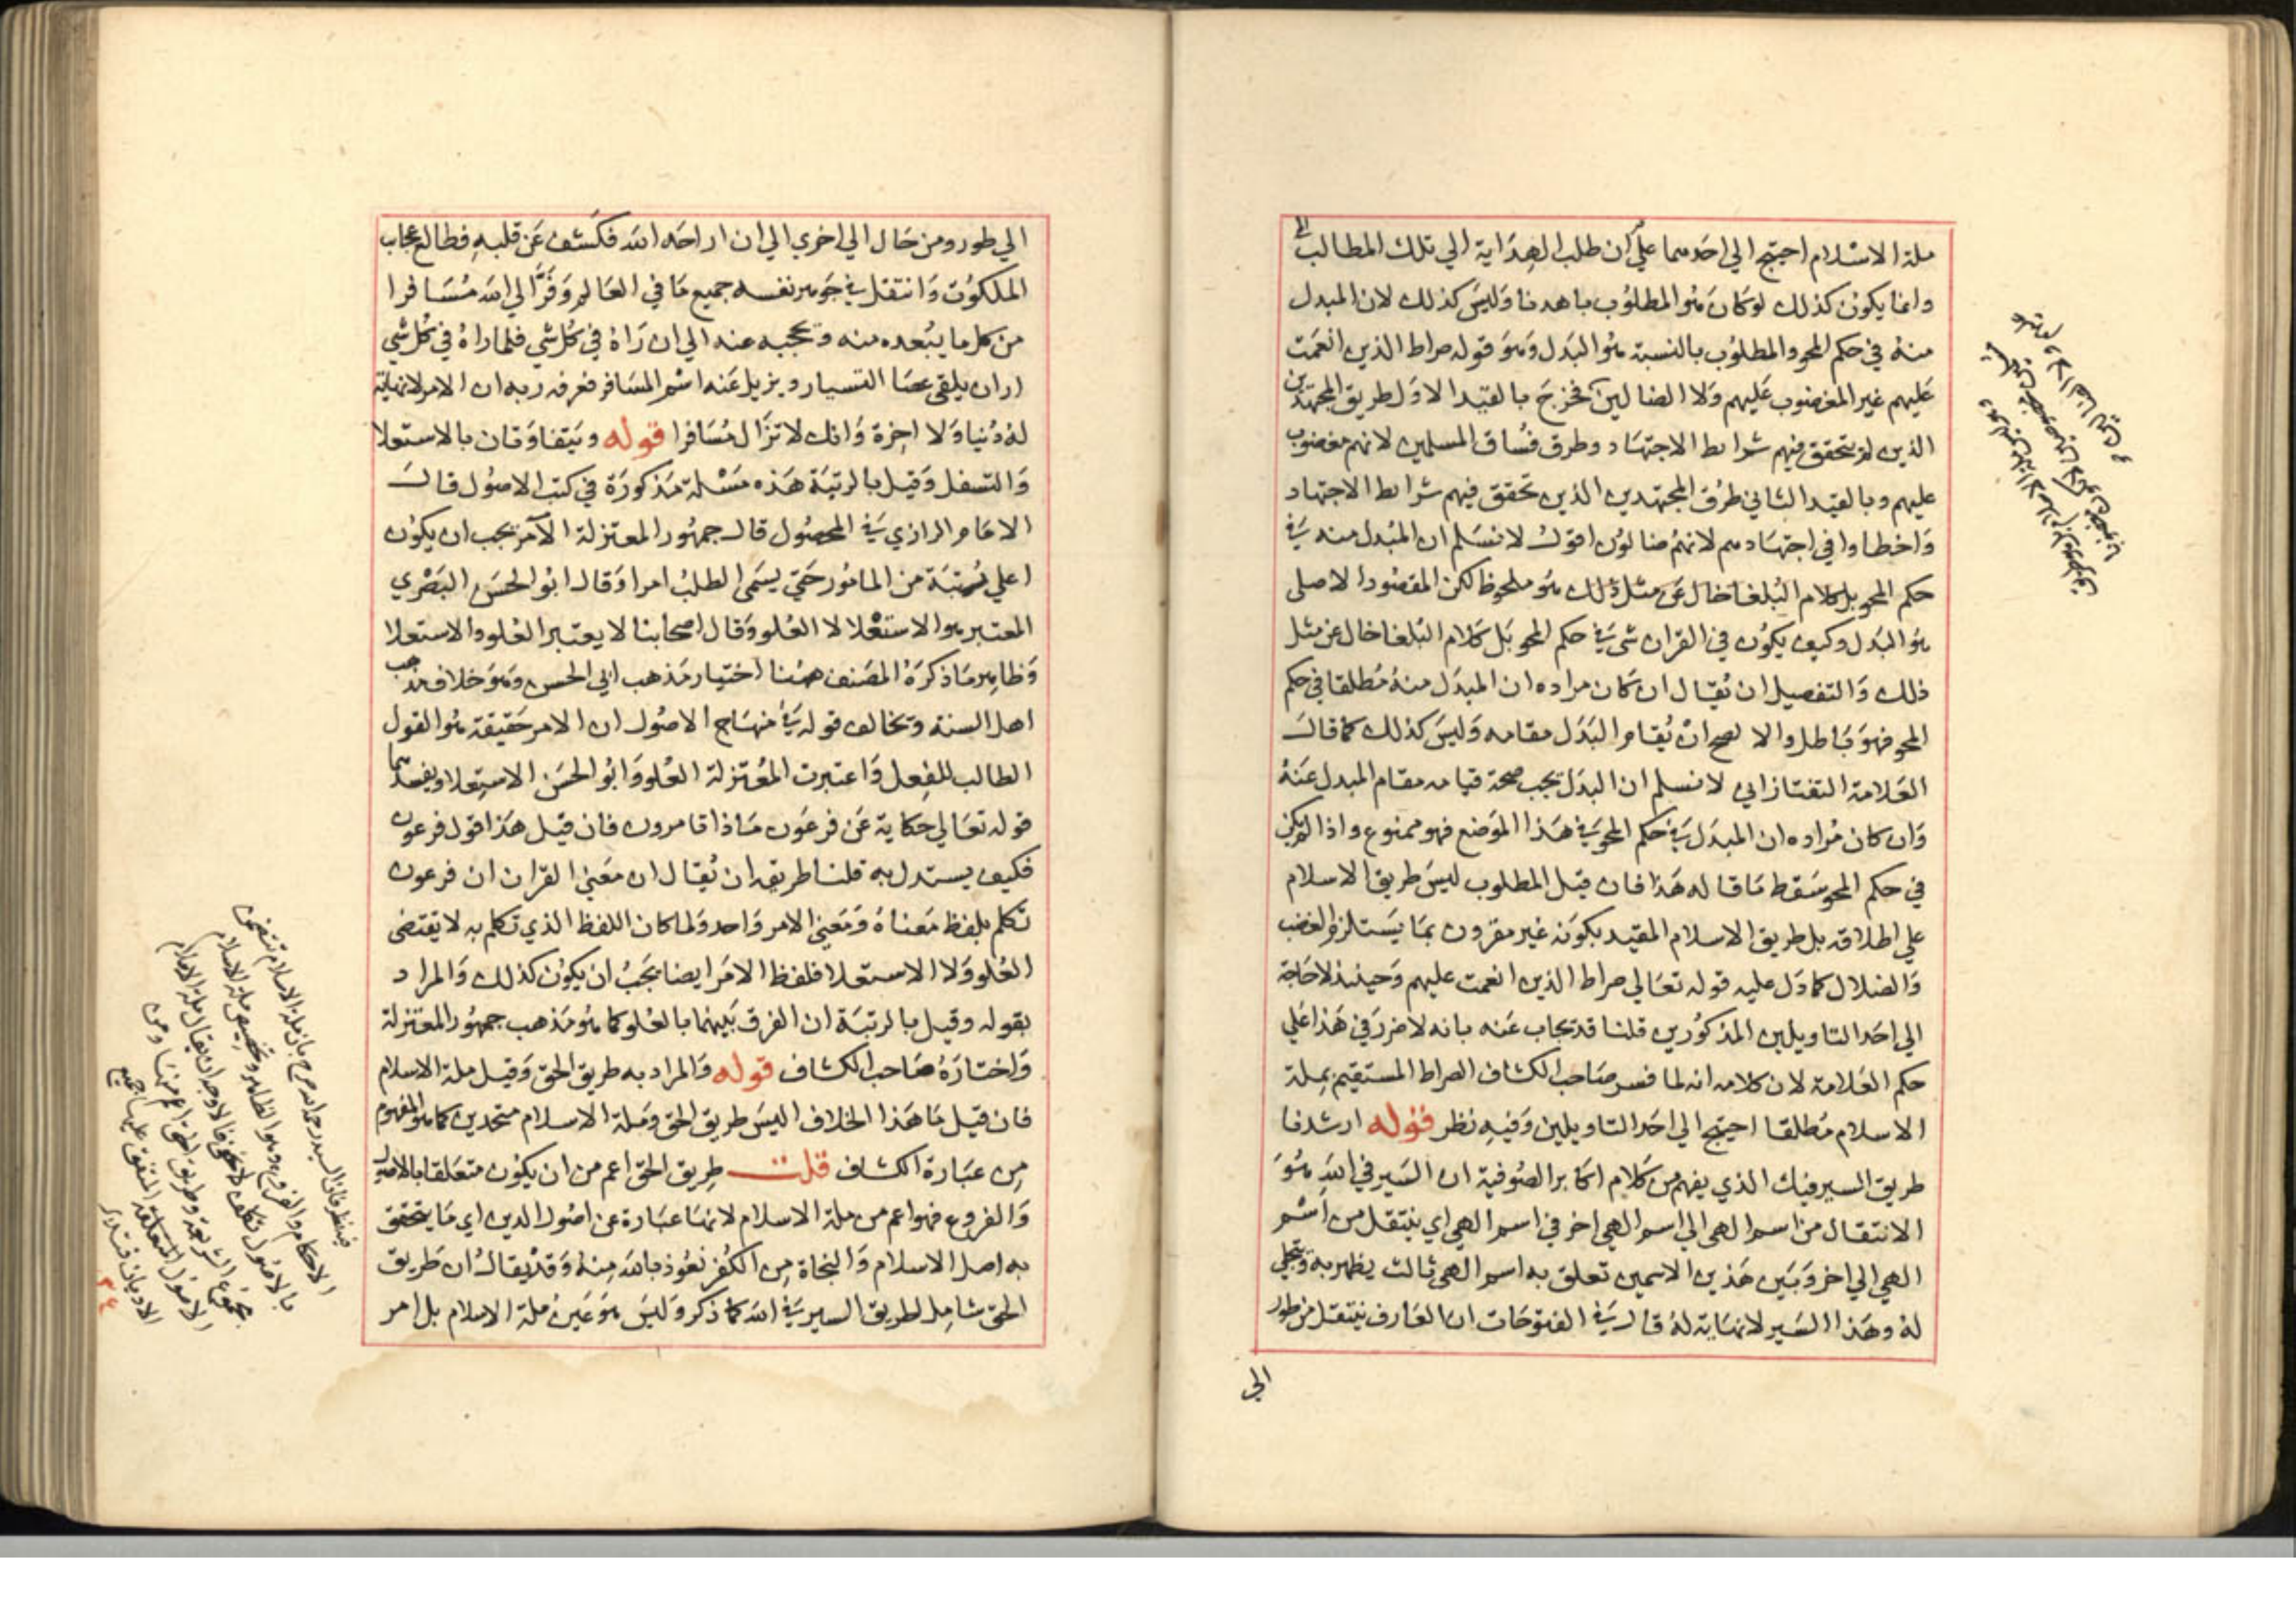 ملة الاسلام احتيج الي احدهما علي ان طلب الهداية الي تلك المطالب
وانما يكون كذلك لو كان هو المطلوب باهدنا وليس كذلك لان المبدل
منه في حكم المحو والمطلوب بالنسبة هو البدل وهو قوله صراط الذين انعمت
عليهم غير المغضوب عليهم ولا الضالين فخرج بالقيد الاول طريق المجتهدين
الذين لم يتحقق فيهم شرايط الاجتهاد وطرق فساق المسلمين لانهم مغضوب
عليهم وبالقيد الثاني طرق المجتهدين الذين تحقق فيهم شرايط الاجتهاد
واخطاوا في اجتهادهم لانهم ضالون اقول لا نسلم ان المبدل منه في
حكم المحو بل كلام البلغا خال عن مثل ذلك هو ملحوظ لكن المقصود الاصلي
هو البدل وكيف يكون في القران شي في حكم المحو بل كلام البلغا خال عن مثل
ذلك والتفصيل ان يقال ان كان مراده ان المبدل منه مطلقا في حكم
المحو فهو باطل والا لصح ان يقام البدل مقامه وليس كذلك كما قال
العلامة التفتازاني لا نسلم ان البدل يجب صحة قيامه مقام المبدل عنه
وان كان مراده ان المبدل في حكم المحو في هذا الموضع فهو ممنوع واذا لم يكن
في حكم المحو سقط ما قاله هذا فان قيل المطلوب ليس طريق الاسلام
علي اطلاقه بل طريق الاسلام المقيد بكونه غير مقرون بما يستلزم الغضب
والضلال كما دل عليه قوله تعالي صراط الذين انعمت عليهم وحينئذ لا حاجة
الي احد التاويلين المذكورين قلنا قد يجاب عنه بانه لا ضرر في هذا علي
حكم العلامة لان كلامه انه لما فسر صاحب الكشاف الصراط المستقيم بملة
الاسلام مطلقا احتيج الي احد التاويلين وفيه نظر قوله ارشدنا
طريق السير فيك الذي يفهم من كلام اكابر الصوفية ان السير في الله هو
الانتقال من اسم الهي الي اسم الهي اخر في اسم الهي اي ينتقل من اسم
الهي الي اخر وبين هذين الاسمين تعلق به اسم الهي ثالث يظهر به وتجلي
له وهذا السير لا نهاية له قال في الفتوحات ان العارف ينتقل من طور
الي
الي طور ومن حال الي اخري الي ان اراحه الله فكشف عن قلبه فطالع عجاب
الملكوت وانتقل في جوهر نفسه جميع ما في العالم وفر الي الله مسافرا
من كل ما يبعده منه ويحجبه عنه الي ان راه في كل شي فلما راه في كل شي
اراد ان يلقي عصا التسيار ويزيل عنه اسم المسافر فعرفه ربه ان الامر لا نهاية
له دنيا ولا اخرة وانك لا تزال مسافرا قوله ويتفاوتان بالاستعلا
والتسفل وقيل بالرتبة هذه مسئلة مذكورة في كتب الاصول قال
الامام الرازي في المحصول قال جمهور المعتزلة الآمر يجب ان يكون
اعلي رتبة من المامور حتي يسمي الطلب امرا وقال ابو الحسن البصري
المعتبر هو الاستعلا لا العلو وقال اصحابنا لا يعتبر العلو والاستعلا
وظاهر ما ذكره المصنف ههنا اختيار مذهب ابي الحسن وهو خلاف مذهب
اهل السنة ويخالف قوله في منهاج الاصول ان الامر حقيقة هو القول
الطالب للفعل واعتبرت المعتزلة العلو وابو الحسن الاستعلا ويفسدهما
قوله تعالي حكاية عن فرعون ماذا تامرون فان قيل هذا قول فرعون
فكيف يستدل به قلنا طريقه ان يقال ان معني القران ان فرعون
تكلم بلفظ معناه ومعني الامر واحد ولما كان اللفظ الذي تكلم به لا يقتضي
العلو ولا الاستعلا فلفظ الامر ايضا يجب ان يكون كذلك والمراد
بقوله وقيل بالرتبة ان الفرق بينهما بالعلو كما هو مذهب جمهور المعتزلة
واختاره صاحب الكشاف قوله والمراد به طريق الحق وقيل ملة الاسلام
فان قيل ما هذا الخلاف اليس طريق الحق وملة الاسلام متحدين كما هو المفهوم
من عبارة الكشاف قلت طريق الحق اعم من ان يكون متعلقا بالاصول
والفروع فهو اعم من ملة الاسلام لانها عبارة عن اصول الدين اي ما يتحقق
به اصل الاسلام والنجاة من الكفر نعوذ بالله منه وقد يقال ان طريق
الحق شامل لطريق السير في الله كما ذكر وليس هو عين ملة الاسلام بل امر
فينظر فان السيد رحمه الله صرح بان ملة الاسلام تتضمن
الاحكام والفروع وهو الظاهر وتخصيص ملة الاسلام
بالاصول تكلف لا يخفي فالاوجه ان يقال ملة الاسلام
مجموع الشريعة وطريق الحق اعم منها ومن
الاصول المتعلقة المتفق عليها جميع
الاديان فتدبر